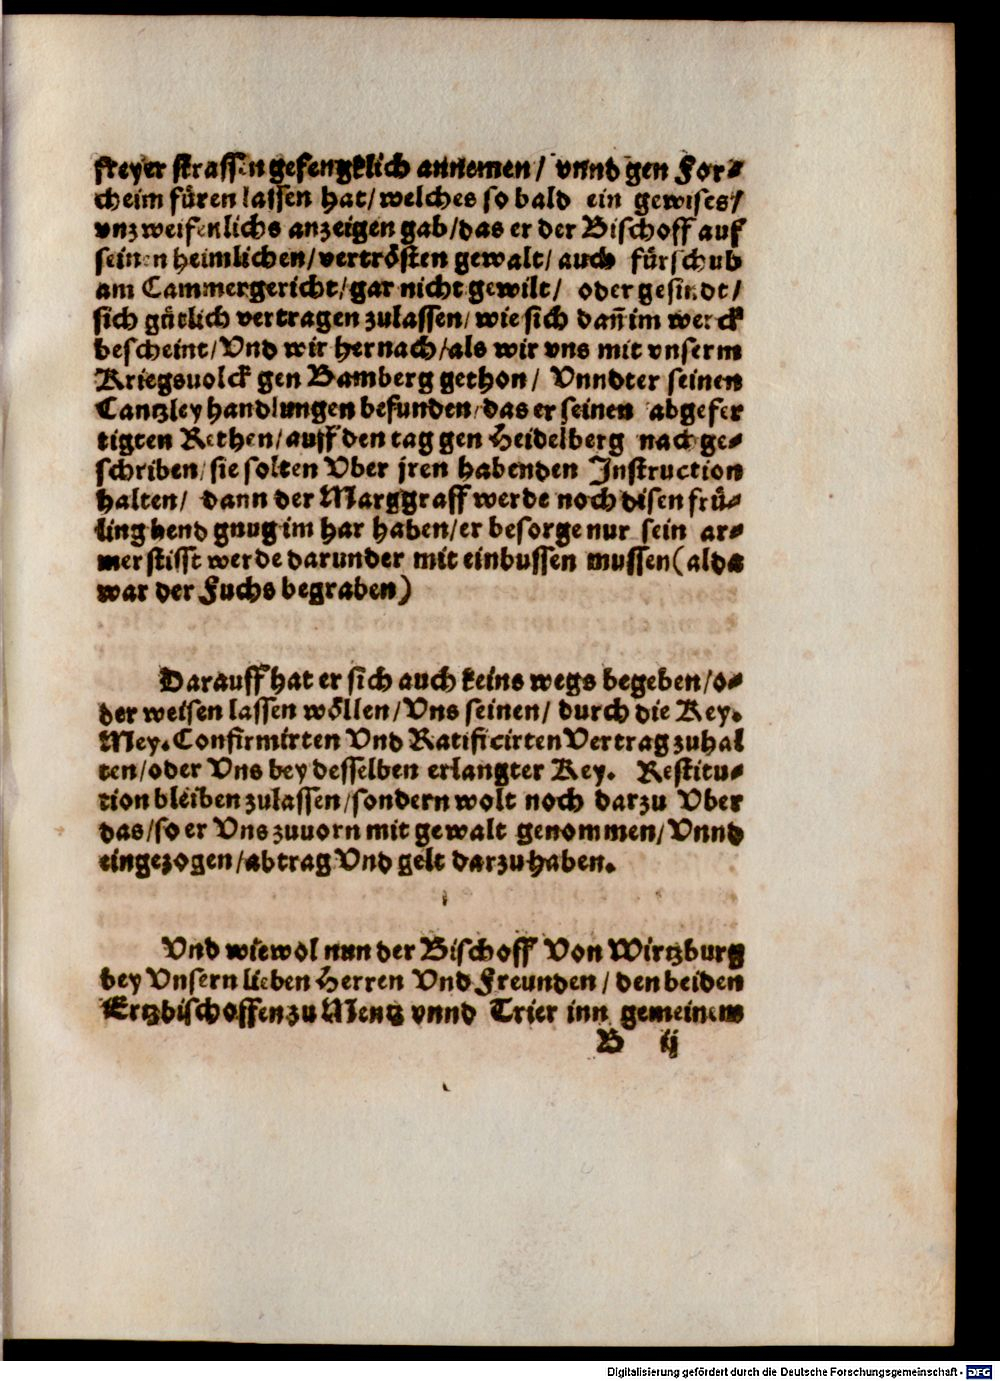 freyer strassen gefengklich annemen / vnnd gen For⸗
cheim füren lassen hat / welches so bald ein gewises /
vnzweifenlichs anzeigen gab / das er der Bischoff auf
seinen heimlichen / vertrösten gewalt / auch fürschub
am Cammergericht / gar nicht gewilt / oder gesindt /
sich gütlich vertragen zulassen / wie sich dañ im werck
bescheint / Vnd wir hernach / als wir vns mit vnserm
Kriegsuolck gen Bamberg gethon / Vnndter seinen
Cantzley handlungen befunden / das er seinen abgefer
tigten Rethen / auff den tag gen Heidelberg nach ge⸗
schriben / sie solten Vber jren habenden Instruction
halten / dann der Marggraff werde noch disen frü⸗
ling hend gnug im har haben / er besorge nur sein ar⸗
mer stifft werde darunder mit einbussen mussen (alda
war der Fuchs begraben)
Darauff hat er sich auch keins wegs begeben / o⸗
der weisen lassen wöllen / Vns seinen / durch die Key.
Mey. Confirmirten Vnd Ratificirten Vertrag zuhal
ten / oder Vns bey desselben erlangter Key. Restitu⸗
tion bleiben zulassen / sondern wolt noch darzu Vber
das / so er Vns zuuorn mit gewalt genommen / Vnnd
eingezogen / abtrag Vnd gelt darzu haben.
Vnd wiewol nun der Bischoff Von Wirtzburg
bey Vnsern lieben Herren Vnd Freunden / den beiden
Ertzbischoffen zu Mentz vnnd Trier inn gemeinem
B ij
Digitalisierung gefördert durch die Deutsche Forschungsgemeinschaft - DFG